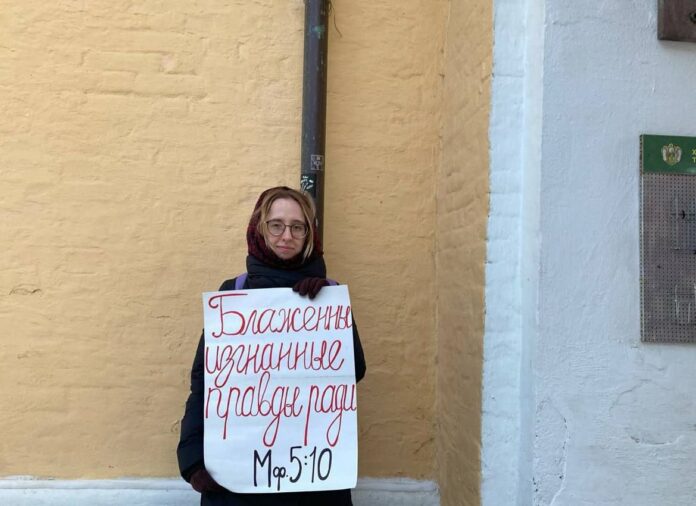 Блаженны
изгнанные
правды ради
Мф.5:10